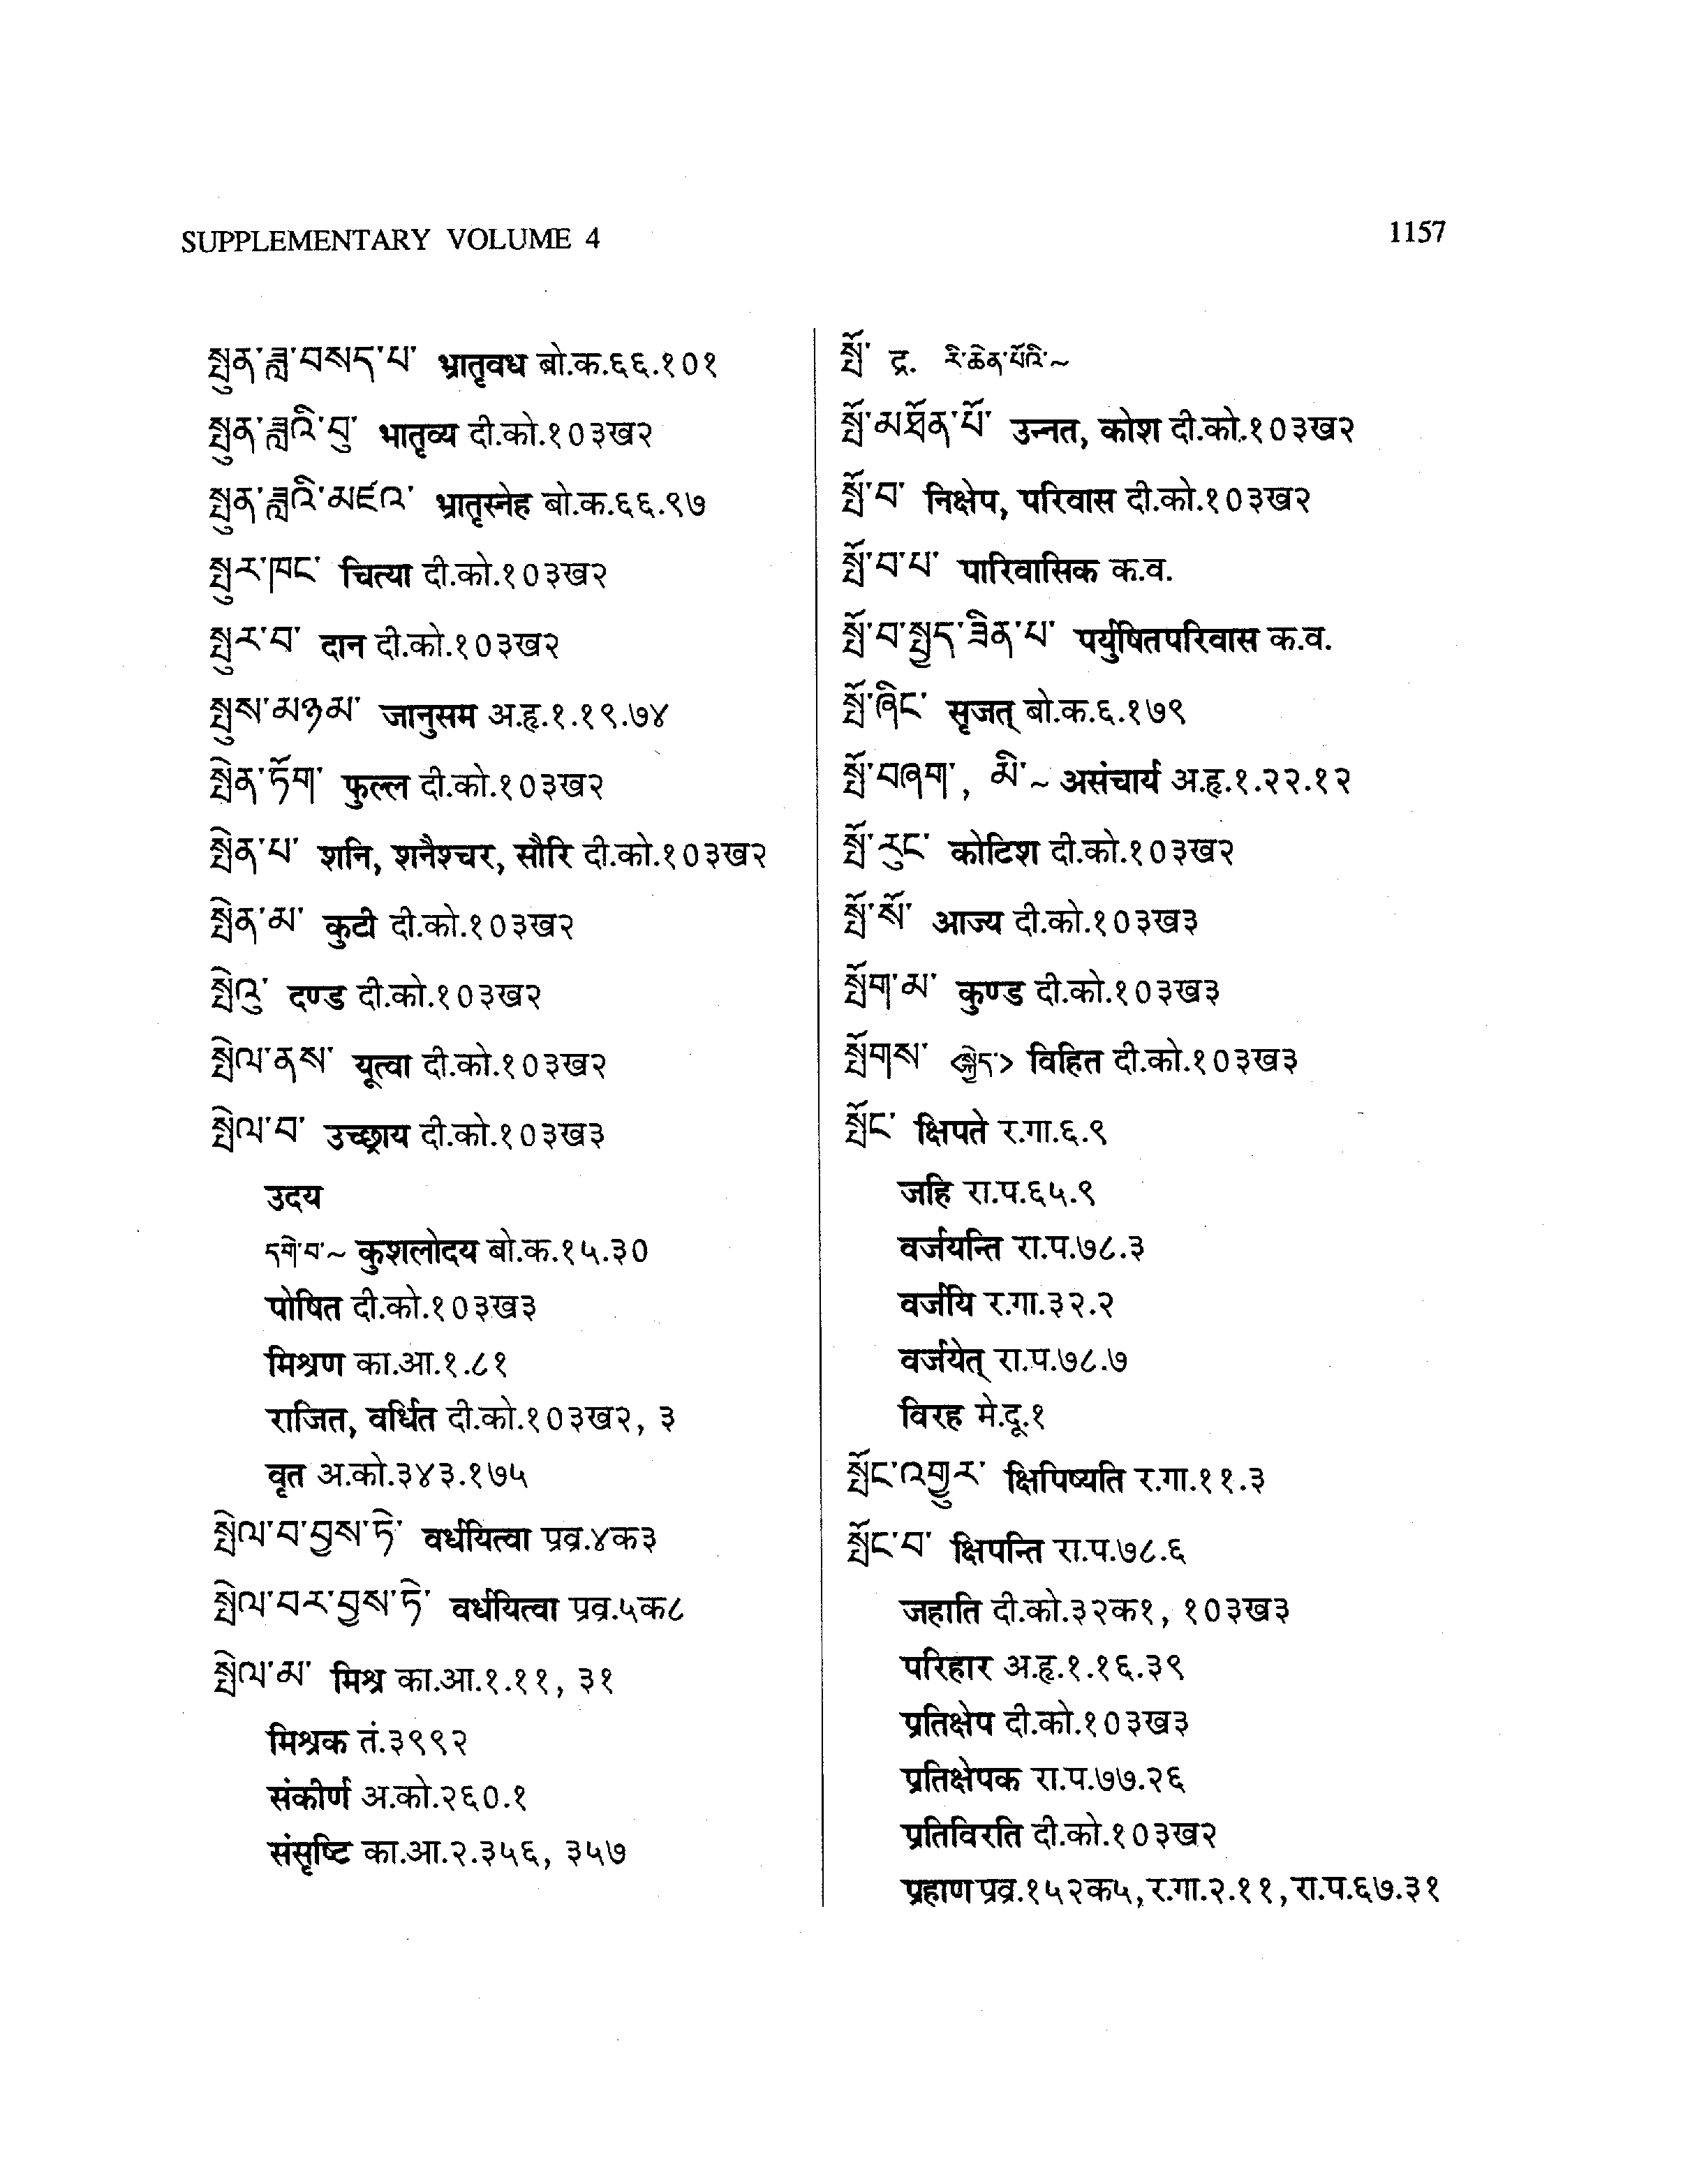 SUPPLEMENTARY VOLUME 4
1157
སྤུན་ཟླ་བསད་པ་ भ्रातृवध बो.क.६६.१०१
སྤུན་ཟླའི་བུ་ भातृव्य दी.को.१०३ख२
སྤུན་ཟླའི་མཛའ་ भ्रातृस्नेह बो.क.६६.९७
སྤུར་ཁང་ चित्या दी.को.१०३ख२
སྤུར་བ་ दान दी.को.१०३ख२
སྤུས་མཉམ་ जानुसम अ.हृ.१.१९.७४
སྤེན་ཏོག་ फुल्ल दी.को.१०३ख२
སྤེན་པ་ शनि, शनैश्चर, सौरि दी.को.१०३ख२
སྤེན་མ་ कुटी दी.को.१०३ख२
སྤེའུ་ दण्ड दी.को.१०३ख२
སྤེལ་ནས་ यूत्वा दी.को.१०३ख२
སྤེལ་བ་ उच्छ्राय दी.को.१०३ख३
उदय
དགེ་བ་~ कुशलोदय बो.क.१५.३०
पोषित दी.को.१०३ख३
मिश्रण का.आ.१.८१
राजित, वर्धित दी.को.१०३ख२, ३
वृत अ.को.३४३.१७५
སྤེལ་བ་བྱས་ཏེ་ वर्धयित्वा प्रव्र.४क३
སྤེལ་བར་བྱས་ཏེ་ वर्धयित्वा प्रव्र.५क८
སྤེལ་མ་ मिश्र का.आ.१.११, ३१
मिश्रक तं.३९९२
संकीर्ण अ.को.२६०.१
संसृष्टि का.आ.२.३५६, ३५७
སྤོ་ द्र. རི་ཆེན་པོའི་~
སྤོ་མཐོན་པོ་ उन्नत, कोश दी.को.१०३ख२
སྤོ་བ་ निक्षेप, परिवास दी.को.१०३ख२
སྤོ་བ་པ་ पारिवासिक क.व.
སྤོ་བ་སྤྱད་ཟིན་པ་ पर्युषितपरिवास क.व.
སྤོ་ཞིང་ सृजत् बो.क.६.१७९
སྤོ་བཞག་, མི་~ असंचार्य अ.हृ.१.२२.१२
སྤོ་རུང་ कोटिश दी.को.१०३ख२
སྤོ་སོ་ आज्य दी.को.१०३ख३
སྤོག་མ་ कुण्ड दी.को.१०३ख३
སྤོགས་ <སྐྱེད་> विहित दी.को.१०३ख३
སྤོང་ क्षिपते र.गा.६.९
जहि रा.प.६५.९
वर्जयन्ति रा.प.७८.३
वर्जयि र.गा.३२.२
वर्जयेत् रा.प.७८.७
विरह मे.दू.१
སྤོང་འགྱུར་ क्षिपिष्यति र.गा.११.३
སྤོང་བ་ क्षिपन्ति रा.प.७८.६
जहाति दी.को.३२क१, १०३ख३
परिहार अ.हृ.१.१६.३९
प्रतिक्षेप दी.को.१०३ख३
प्रतिक्षेपक रा.प.७७.२६
प्रतिविरति दी.को.१०३ख२
प्रहाण प्रव्र.१५२क५, र.गा.२.११, रा.प.६७.३१